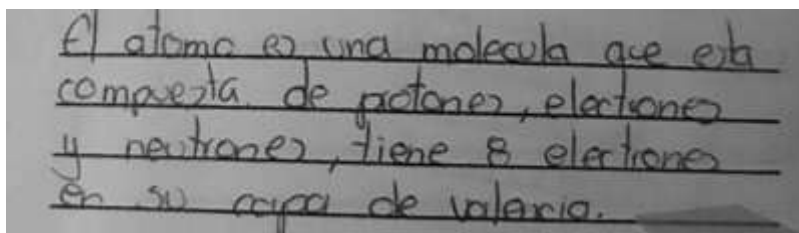 El atomo es una molecula que esta
compuesta de protones, electrones
y neutrones, tiene 8 electrones
en su capa de valencia.